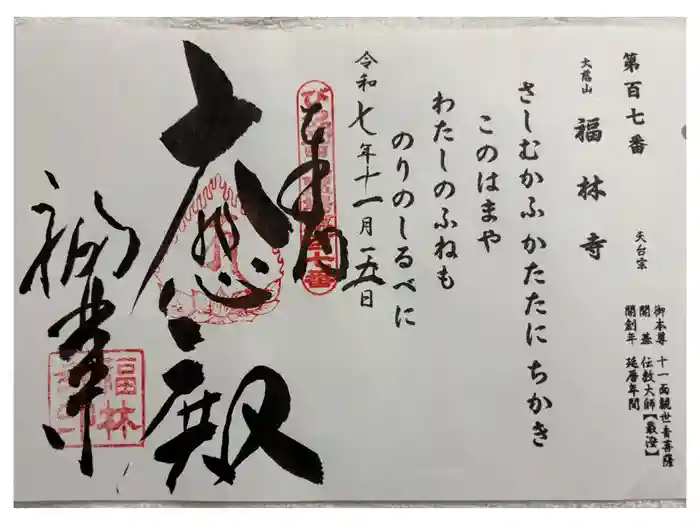 第百七番
大慈山
福林寺
天台宗
御本尊 十一面観世音菩薩
開基 伝教大師【最澄】
開創年 延暦年間
さしむかふ かたたに ちかき
このはまや
わたしのふねも
のりのしるべに
令和七年十一月二五日
奉拝
大悲殿
福林寺
福林